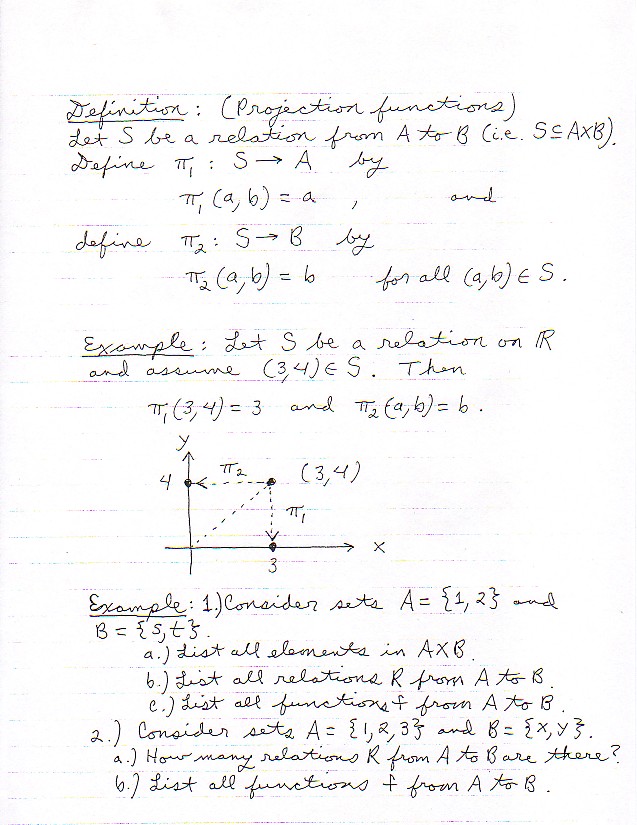 Definition: (Projection functions)
Let S be a relation from A to B (i.e. S ⊆ A×B).
Define π₁ : S → A by
π₁(a,b) = a , and
define π₂ : S → B by
π₂(a,b) = b for all (a,b) ∈ S.
Example: Let S be a relation on ℝ
and assume (3,4) ∈ S. Then
π₁(3,4) = 3 and π₂(a,b) = b.
y
4 π₂ (3,4)
π₁
x
3
Example: 1.) Consider sets A = {1,2} and
B = {s,t}.
a.) List all elements in A×B.
b.) List all relations R from A to B.
c.) List all functions f from A to B.
2.) Consider sets A = {1,2,3} and B = {x,y}.
a.) How many relations R from A to B are there?
b.) List all functions f from A to B.